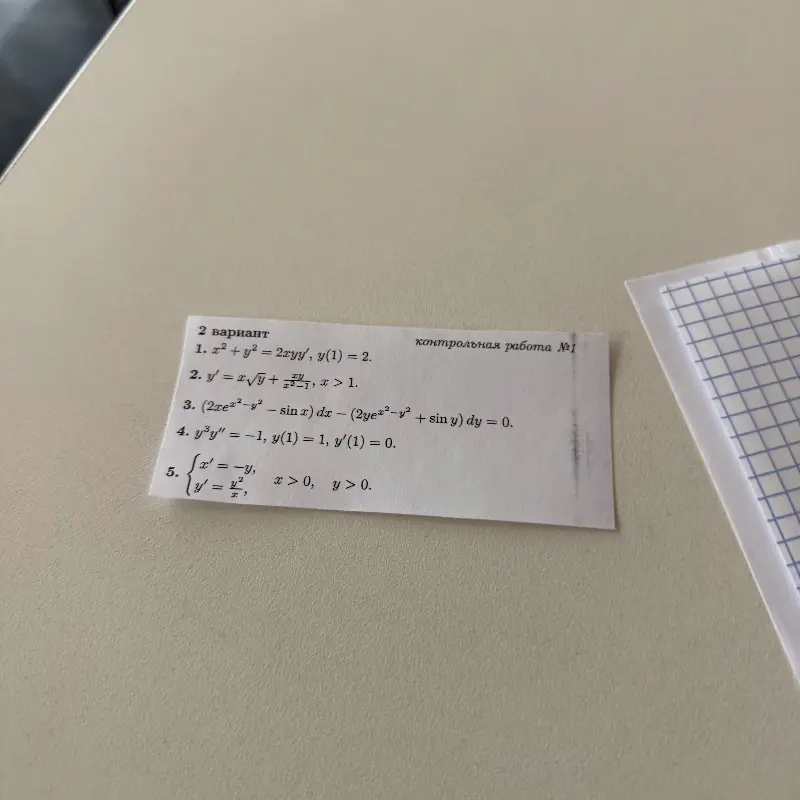 2 вариант
контрольная работа №1
1. x² + y² = 2xyy′, y(1) = 2.
2. y′ = x√y + xy/(x²−1), x > 1.
3. (2xe^(x²−y²) − sin x) dx − (2ye^(x²−y²) + sin y) dy = 0.
4. y³y″ = −1, y(1) = 1, y′(1) = 0.
5. { x′ = −y,
y′ = y²/x, x > 0, y > 0.